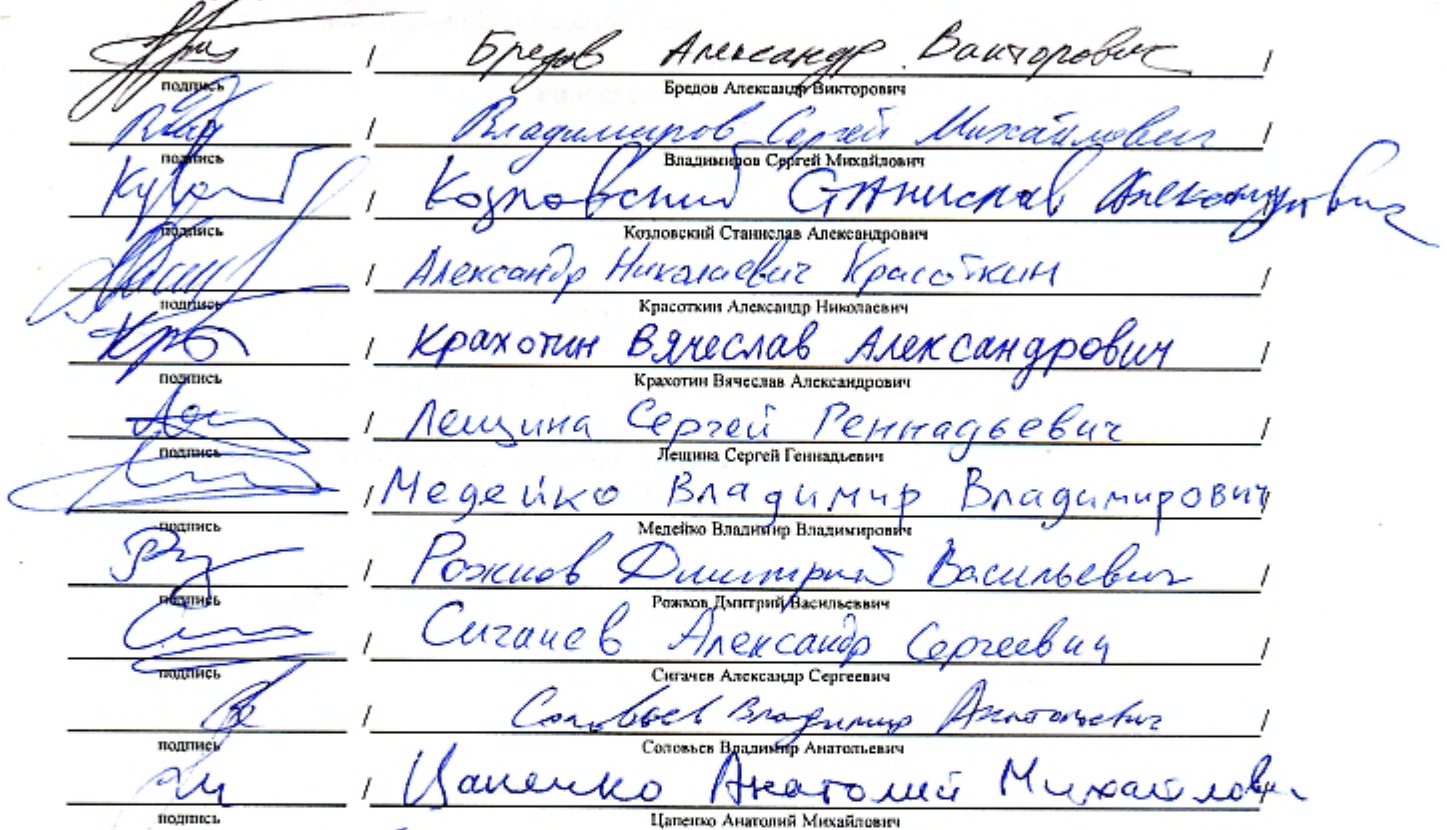 / Бредов Александр Викторович /
подпись Бредов Александр Викторович
/ Владимиров Сергей Михайлович /
подпись Владимиров Сергей Михайлович
/ Козловский Станислав Александрович /
подпись Козловский Станислав Александрович
/ Александр Николаевич Красоткин /
подпись Красоткин Александр Николаевич
/ Крахотин Вячеслав Александрович /
подпись Крахотин Вячеслав Александрович
/ Лещина Сергей Геннадьевич /
подпись Лещина Сергей Геннадьевич
/ Медейко Владимир Владимирович /
подпись Медейко Владимир Владимирович
/ Рожков Дмитрий Васильевич /
подпись Рожков Дмитрий Васильеввич
/ Сигачев Александр Сергеевич /
подпись Сигачев Александр Сергеевич
/ Соловьев Владимир Анатольевич /
подпись Соловьев Владимир Анатольевич
/ Цапенко Анатолий Михайлович
подпись Цапенко Анатолий Михайлович